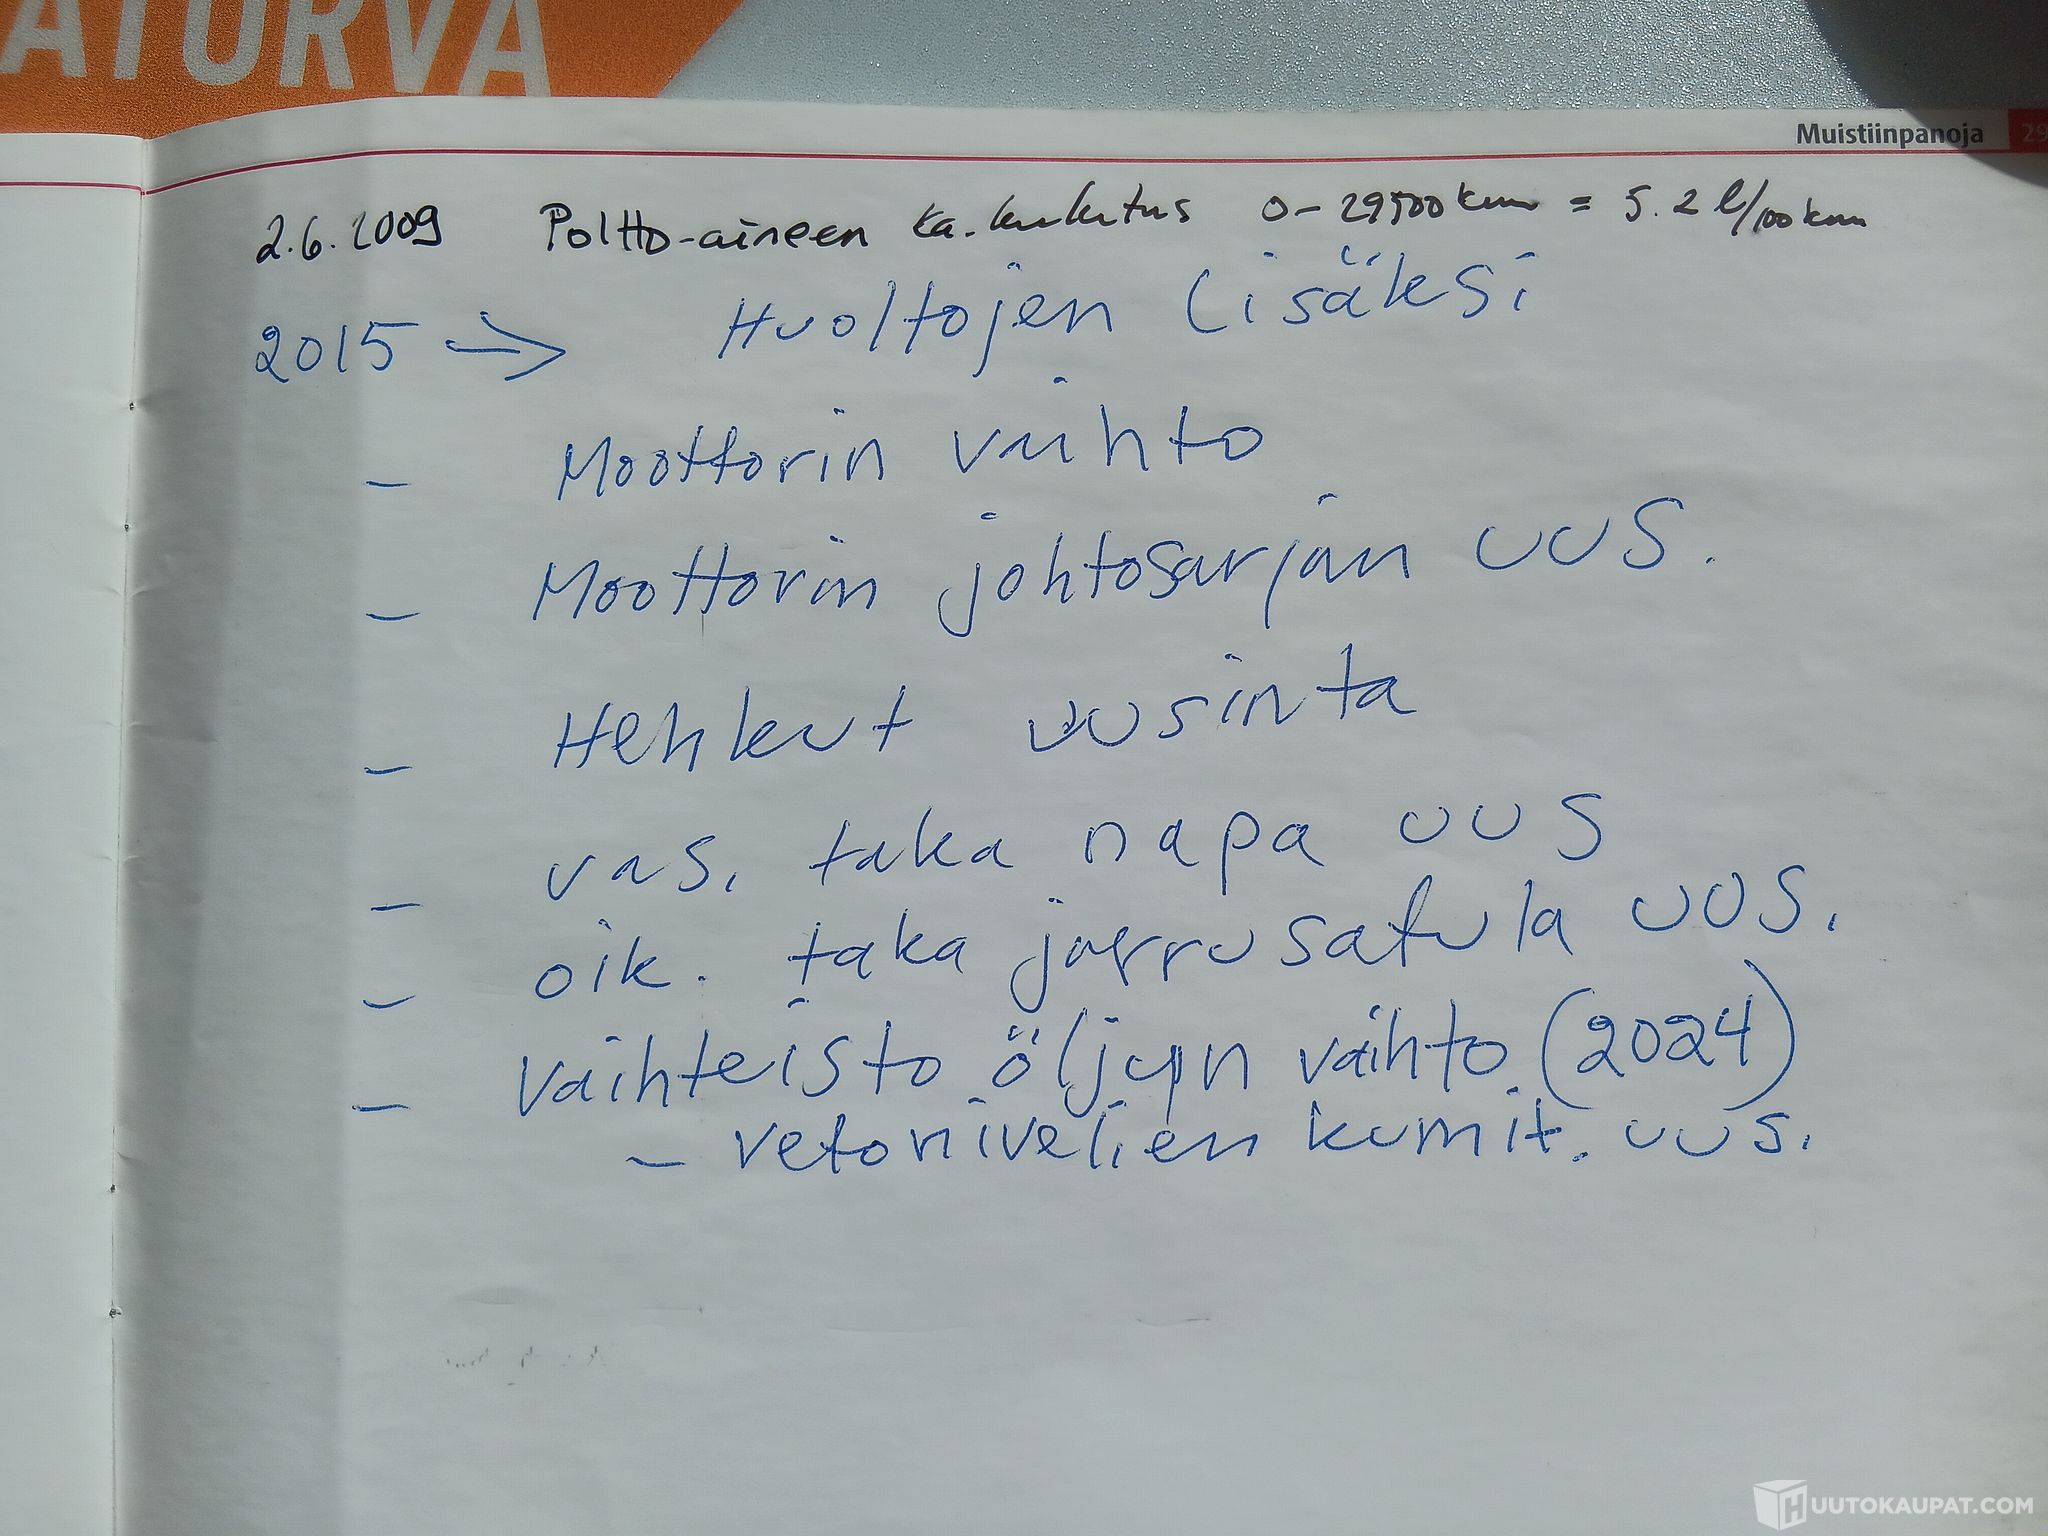 ATURVA
Muistiinpanoja 29
2.6.2009 Poltto-aineen ka. kulutus 0-29500 km = 5.2 l/100 km
2015 → Huoltojen lisäksi
- Moottorin vaihto
- Moottorin johtosarjan uus.
- Hehkut uusinta
- vas. taka napa uus
- oik. taka jarrusatula uus.
- Vaihteisto öljyn vaihto. (2024)
- vetonivelien kumit. uus.
HUUTOKAUPAT.COM